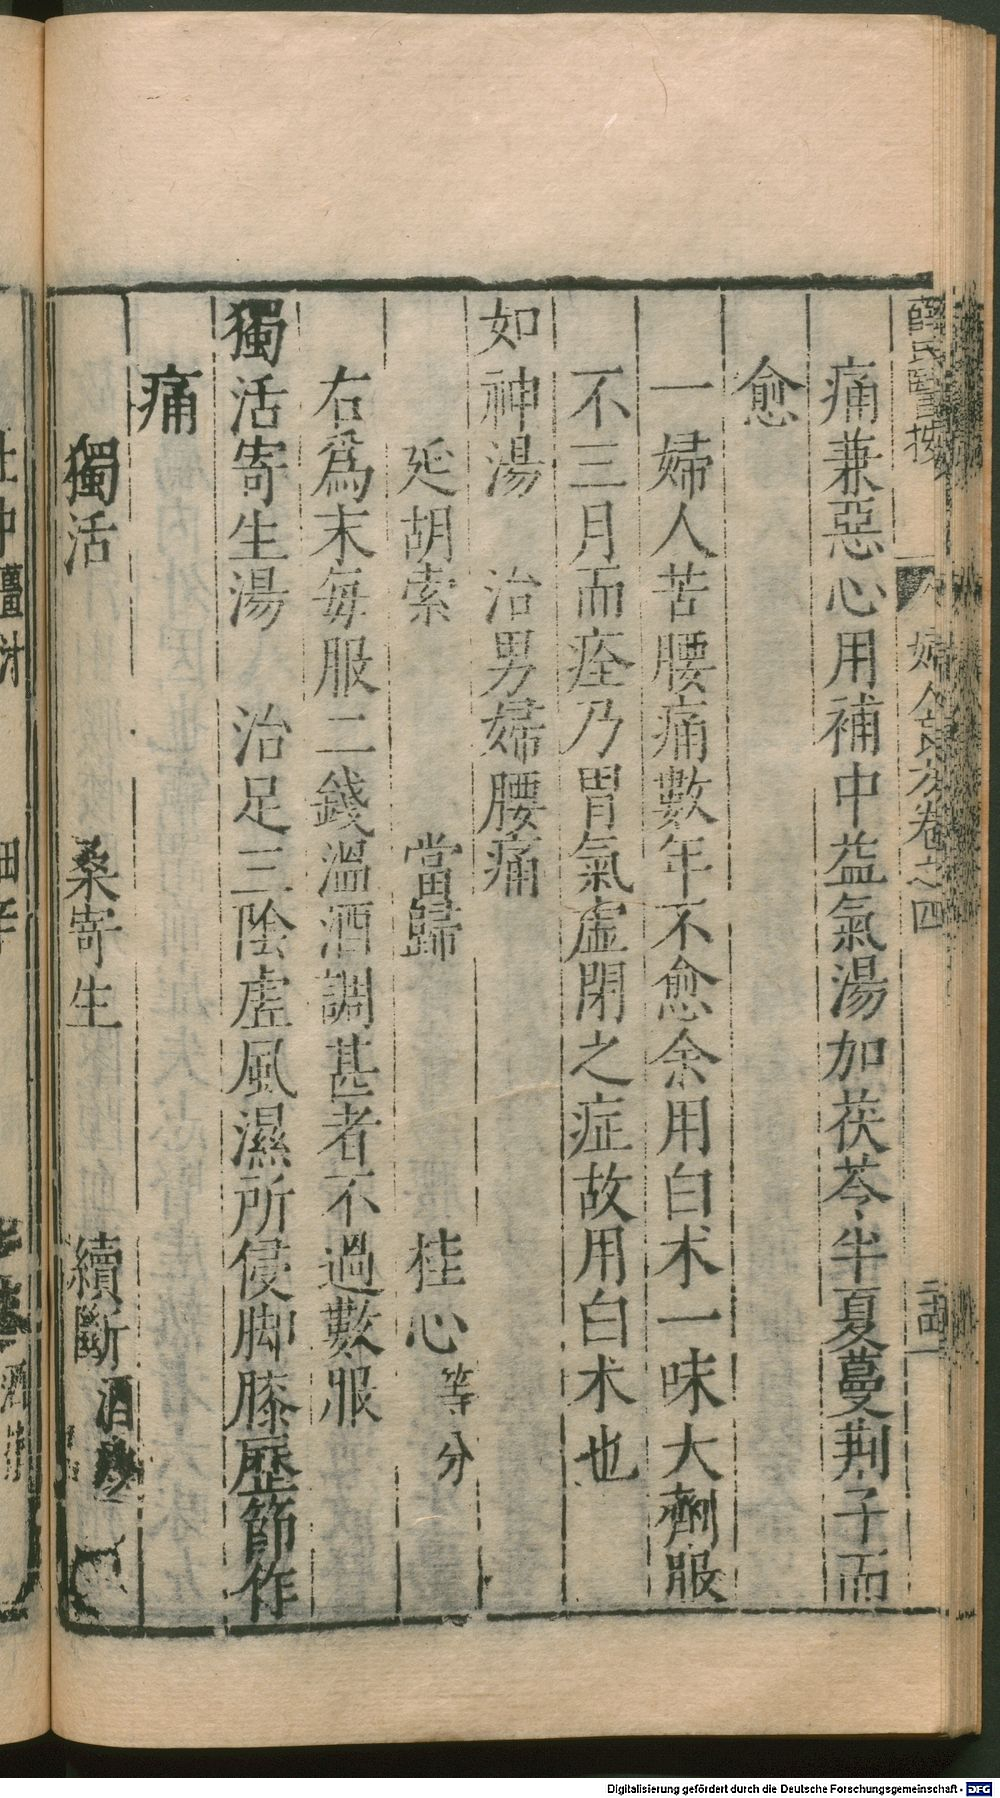 薛氏醫按
婦人良方卷之四
痛兼惡心用補中益氣湯加茯苓半夏蔓荆子而
愈
一婦人苦腰痛數年不愈余用白术一味大劑服
不三月而痊乃胃氣虛閉之症故用白术也
如神湯 治男婦腰痛
延胡索 當歸 桂心 等分
右爲末每服二錢溫酒調甚者不過數服
獨活寄生湯 治足三陰虛風濕所侵脚膝歷節作
痛
獨活 桑寄生 續斷 酒
杜中 薑汁 細辛
Digitalisierung gefördert durch die Deutsche Forschungsgemeinschaft - DFG